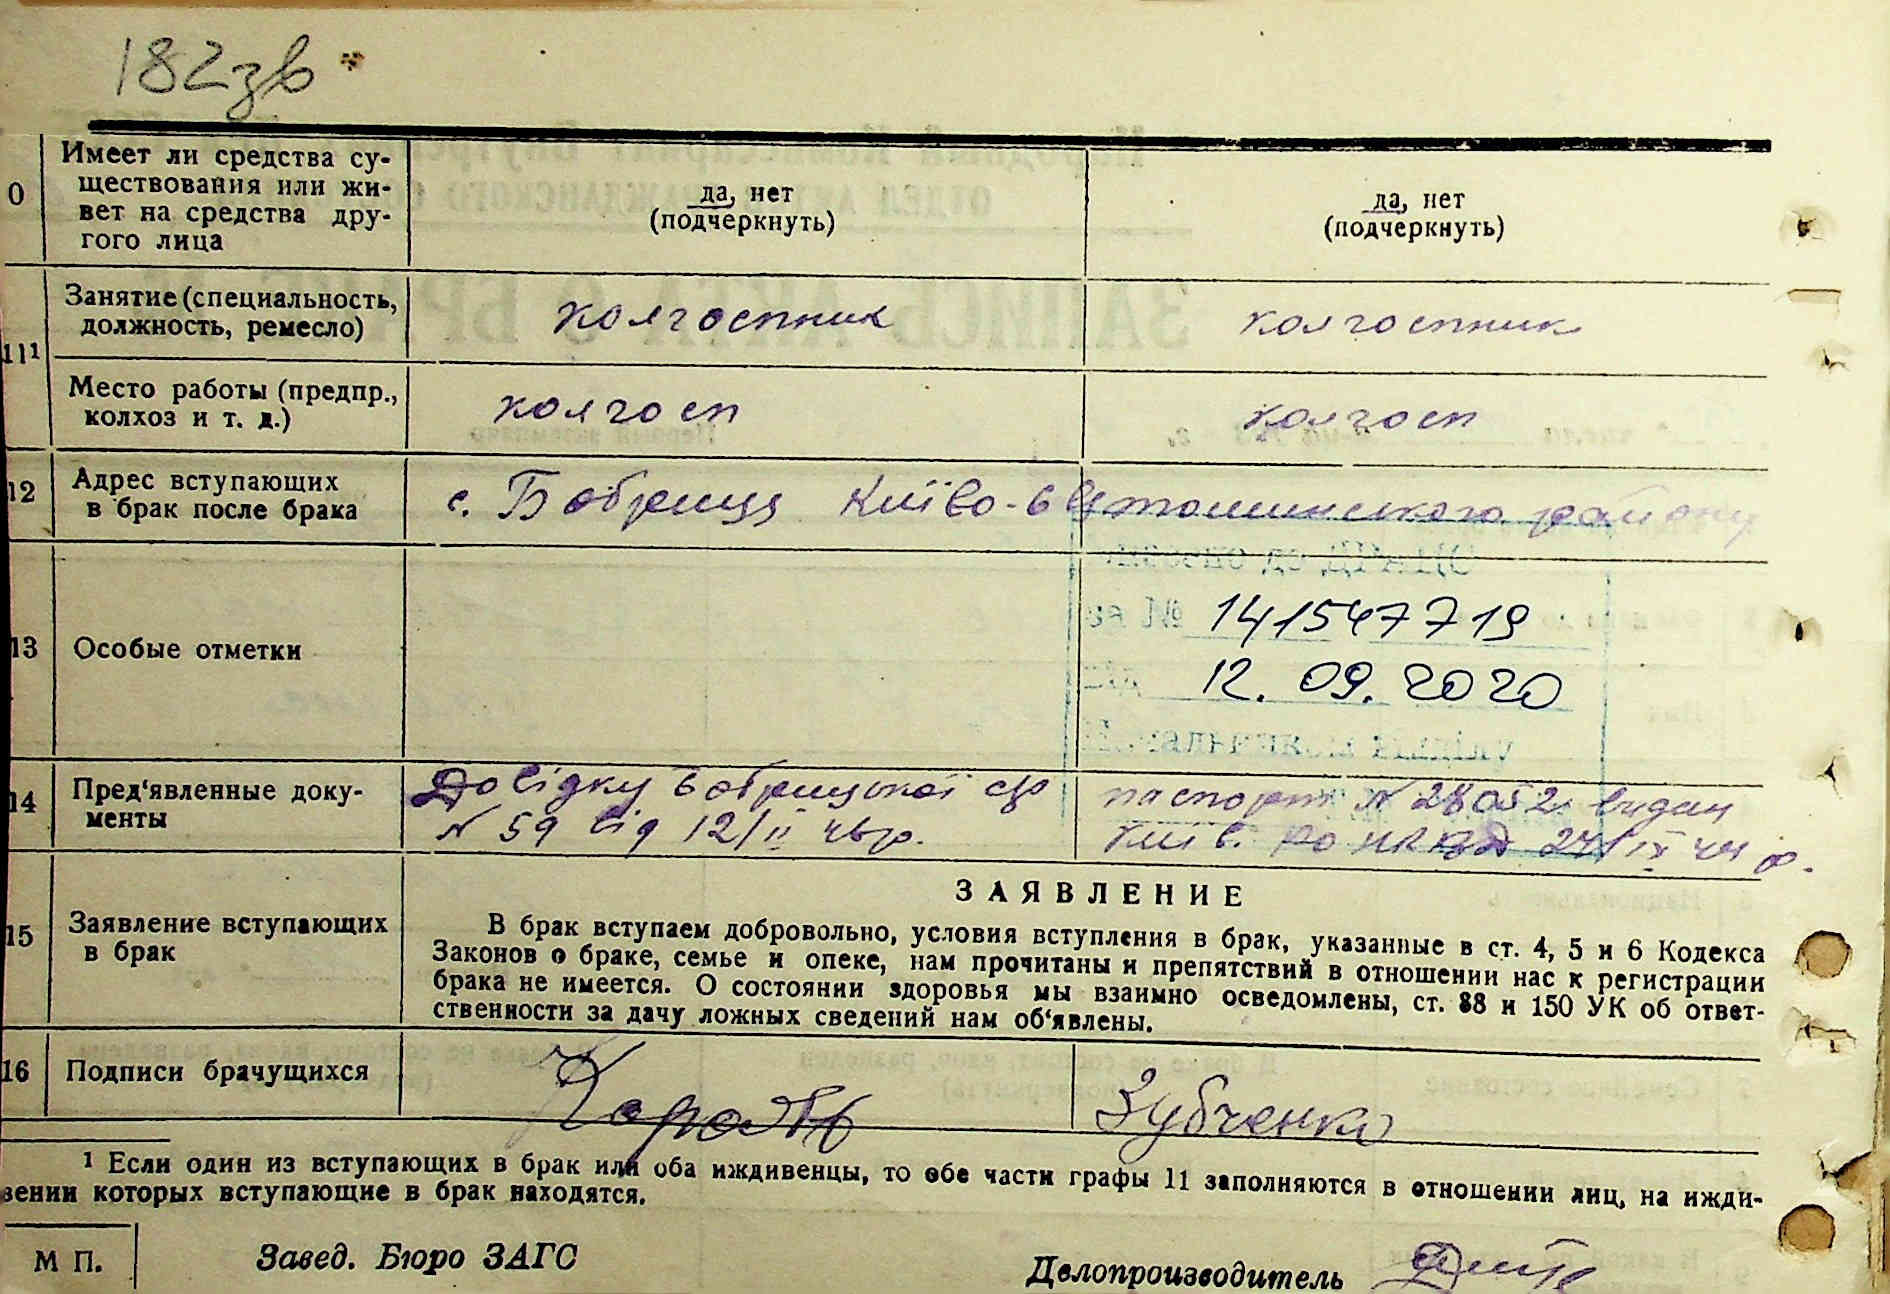 182зв
10
Имеет ли средства су-
ществования или жи-
вет на средства дру-
гого лица
да, нет
(подчеркнуть)
да, нет
(подчеркнуть)
11¹
Занятие (специальность,
должность, ремесло)
колгоспник
колгоспник
Место работы (предпр.,
колхоз и т. д.)
колгосп
колгосп
12
Адрес вступающих
в брак после брака
с. Бобриця Київо-Святошинського району
13
Особые отметки
141547719
12. 09. 2020
14
Пред‘явленные доку-
менты
Довідку Бобрицької с/р
N 59 від 12/II
паспорт N видан
Київ. РО НКВД 24/IX 44 р.
15
Заявление вступающих
в брак
ЗАЯВЛЕНИЕ
В брак вступаем добровольно, условия вступления в брак, указанные в ст. 4, 5 и 6 Кодекса
Законов о браке, семье и опеке, нам прочитаны и препятствий в отношении нас к регистрации
брака не имеется. О состоянии здоровья мы взаимно осведомлены, ст. 88 и 150 УК об ответ-
ственности за дачу ложных сведений нам об‘явлены.
16
Подписи брачущихся
Зубченко
¹ Если один из вступающих в брак или оба иждивенцы, то обе части графы 11 заполняются в отношении лиц, на ижди-
вении которых вступающие в брак находятся.
М П.
Завед. Бюро ЗАГС
Делопроизводитель